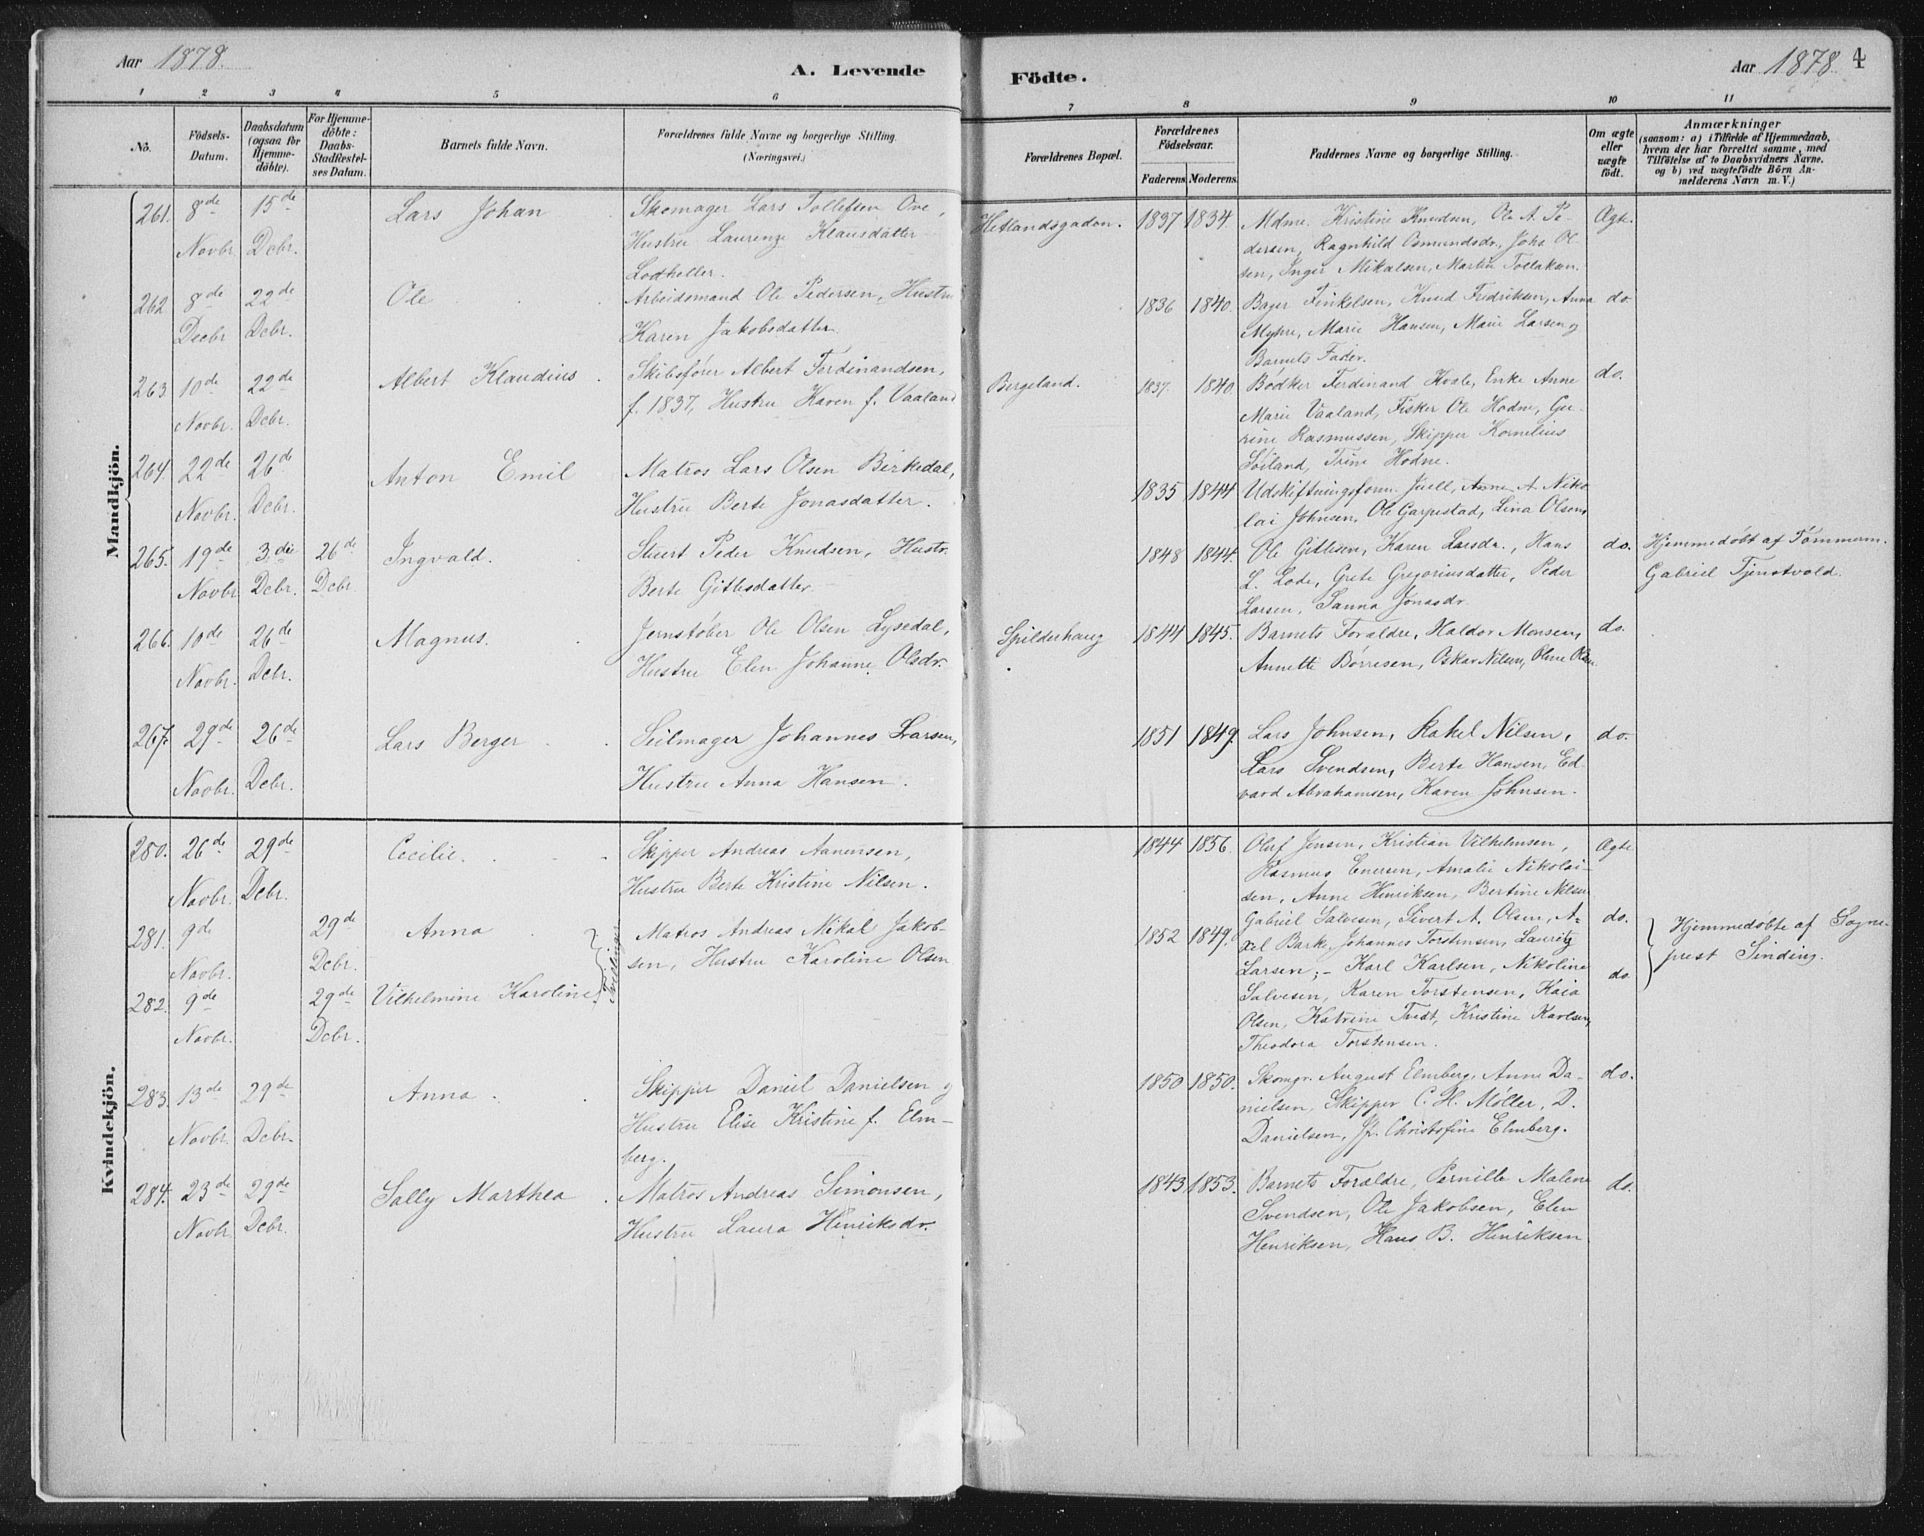 Aar 1878.
A. Levende
Födte.
Aar 1878. 4
1 2 3 4 5 6 7 8 9 10 11
No.
Födsels-
Datum.
Daabsdatum
(ogsaa for
Hjemme-
döbte).
For Hjemme-
döbte:
Daabs-
Stadfestel-
ses Datum.
Barnets fulde Navn.
Forældrenes fulde Navne og borgerlige Stilling.
(Næringsvei.)
Forældrenes Bopæl.
Forældrenes
Födselsaar.
Faderens. Moderens.
Faddernes Navne og borgerlige Stilling.
Om ægte
eller
uægte
födt.
Anmærkninger
(saasom: a) i Tilfælde af Hjemmedaab,
hvem der har forrettet samme, med
Tilföielse af to Daabsvidners Navne.
og b) ved uægtefödte Börn An-
melderens Navn m. V.)
Mandkjön.
261. 8de Novbr. 15de Dcbr. Lars Johan
Skomager Lars Tollefsen Ove,
Hustru Laurenze Klausdatter
Lodheller.
Hetlandsgaden. 1837 1834.
Mdme. Kristine Knudsen, Ole A. Pe-
dersen, Ragnhild Osmundsdr., Johs Ol-
sen, Inger Mikalsen, Martin Tollaksen.
Ægte.
262 8de Decbr 22de Dcbr. Ole
Arbeidsmand Ole Pedersen, Hustru
Karen Jakobsdatter.
1836 1840.
Bager Finkelsen, Knud Fredriksen, Anna
Myhre, Marie Hansen, Marie Larsen og
Barnets Fader.
do
263. 10de Novbr. 22de Dcbr. Albert Klaudius
Skibsfører Albert Ferdinandsen,
f. 1837, Hustru Karen f. Vaaland
Bergeland. 1837. 1840.
Bødker Ferdinand Hvale, Enke Anne
Marie Vaaland, Fisker Ole Hodne, Gu-
rine Rasmussen, Skipper Kornelius
Soiland, Trine Hodne.
do.
264. 22de Novbr. 26de Dcbr. Anton Emil
Matros Lars Olsen Birkedal,
Hustru Berte Jonasdatter.
1835 1844
Udskiftningsform. Juell, Anne A. Niko
lai Johnsen, Ole Garpestad, Lina Olsen,
265. 19de Novbr 3die Dcbr. 26de Dcbr. Ingvald.
Stuert Peder Knudsen, Hustr.
Berte Gitlesdatter
1848 1844.
Ole Gitlesen, Karen Larsdr., Hans
L. Lode, Grete Gregoriusdatter, Peder
Larsen, Sanna Jonasdr.
do.
Hjemmedøbt af Tømmerm.
Gabriel Tjenstvold.
266. 10de Novbr. 26de Dcbr. Magnus.
Jernstøber Ole Olsen Lysedal,
Hustru Elen Johanne Olsdr.
Spilderhaug 1844 1845.
Barnets Forældre, Haldor Monsen,
Annette Børresen, Oskar Nilsen, Oline Olsen
do.
267. 29de Novbr. 26de Dcbr. Lars Berger
Seilmager Johannes Larsen,
Hustru Anna Hansen.
1851 1849.
Lars Johnsen, Rakel Nilsen,
Lars Svendsen, Berte Hansen, Ed-
vard Abrahamsen, Karen Johnsen.
do.
Kvindekjön.
280. 26de Novbr. 29de Dcbr. Cecilie.
Skipper Andreas Aanensen,
Hustru Berte Kristine Nilsen.
1844 1856.
Oluf Jensen, Kristian Vilhelmsen,
Rasmus Enersen, Amalie Nikolai-
sen, Anne Henriksen, Bertine Nilsen
Ægte
281. 9de Novbr. 29de Dcbr. Anna
Matros Andreas Mikal Jakob-
sen, Hustru Karoline Olsen
1852 1849.
Gabriel Salvesen, Sivert A. Olsen, A-
xel Bark, Johannes Torstensen, Lauritz
Larsen; – Karl Karlsen, Nikoline
Salvesen, Karen Torstensen, Kaia
Olsen, Katrine Tvedt, Kristine Karlsen,
Theodora Torstensen.
do.
Hjemmedøbte af Sogne-
prest Sinding.
282. 9de Novbr. 29de Dcbr. Vilhelmine Karoline
Tvillinger
do.
283. 13de Novbr. 29de Dcbr. Anna
Skipper Daniel Danielsen og
Hustru Elise Kristine f. Elm-
berg.
1850 1850.
Skomgr. August Elmberg, Anne Da-
nielsen, Skipper C. H. Møller, D.
Danielsen, Fr. Christofine Elmberg.
do.
284. 23de Novbr. 29de Dcbr. Sally Marthea
Matros Andreas Simonsen,
Hustru Laura Henriksdr.
1843 1853.
Barnets Forældre, Pernille Malene
Svendsen, Ole Jakobsen, Elen
Henriksen, Hans B. Henriksen
do.